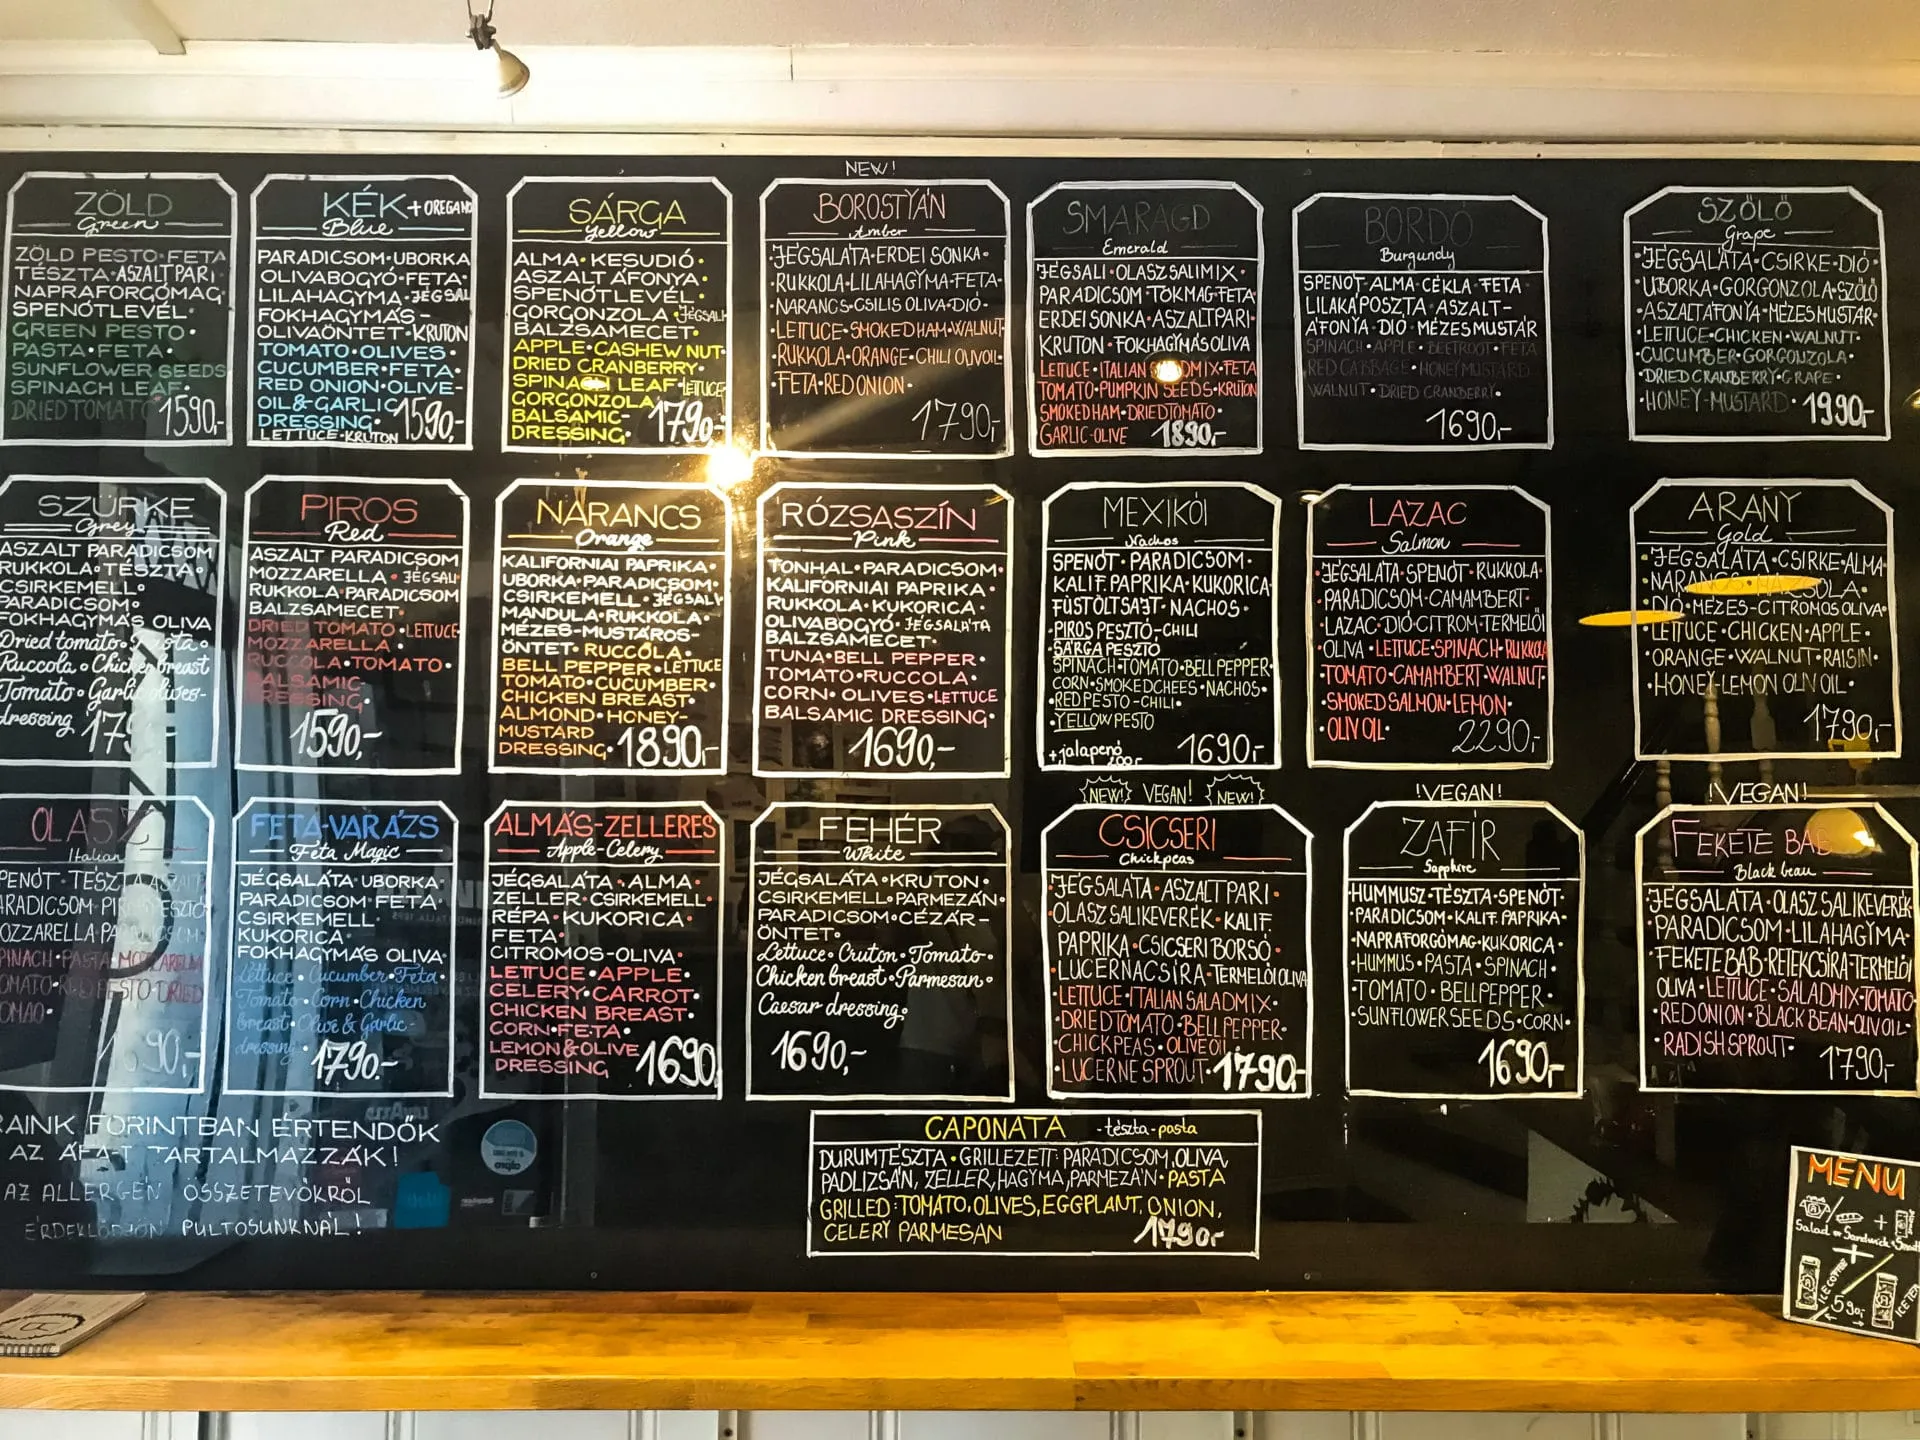 NEW!
ZÖLD
Green
ZÖLD PESTO·FETA
TÉSZTA·ASZALT PARI
NAPRAFORGÓMAG·
SPENÓTLEVÉL·
GREEN PESTO·
PASTA·FETA·
SUNFLOWER SEEDS
SPINACH LEAF·
DRIED TOMATO 1590,-
KÉK + OREGANO
Blue
PARADICSOM·UBORKA
OLIVABOGYÓ·FETA·
LILAHAGYMA·JÉGSAL
FOKHAGYMÁS-
OLIVAÖNTET·KRUTON
TOMATO·OLIVES·
CUCUMBER·FETA·
RED ONION·OLIVE-
OIL & GARLIC
DRESSING· 1590,-
LETTUCE·KRUTON
SÁRGA
Yellow
ALMA·KESUDIÓ·
ASZALT ÁFONYA·
SPENÓTLEVÉL·
GORGONZOLA·JÉGSAL
BALZSAMECET·
APPLE·CASHEW NUT·
DRIED CRANBERRY·
SPINACH LEAF·LETTUCE
GORGONZOLA
BALSAMIC-
DRESSING· 1790,-
BOROSTYÁN
Amber
JÉGSALÁTA·ERDEI SONKA·
RUKKOLA·LILAHAGYMA·FETA·
NARANCS·CSILIS OLIVA·DIÓ·
LETTUCE·SMOKED HAM·WALNUT
RUKKOLA·ORANGE·CHILI OLIVOIL·
FETA·RED ONION·
1790,-
SMARAGD
Emerald
JÉGSALI·OLASZ SALIMIX·
PARADICSOM TÖKMAG·FETA
ERDEI SONKA·ASZALT PARI·
KRUTON·FOKHAGYMÁS OLIVA
LETTUCE·ITALIAN MIX·FETA
TOMATO·PUMPKIN SEEDS·KRUTON
SMOKED HAM·DRIED TOMATO·
GARLIC-OLIVE 1890,-
BORDÓ
Burgundy
SPENÓT·ALMA·CÉKLA·FETA
LILAKÁPOSZTA·ASZALT-
ÁFONYA·DIÓ·MÉZES MUSTÁR
SPINACH·APPLE·BEETROOT·FETA
RED CABBAGE·HONEY MUSTARD
WALNUT·DRIED CRANBERRY·
1690,-
SZŐLŐ
Grape
JÉGSALÁTA·CSIRKE·DIÓ·
UBORKA·GORGONZOLA·SZŐLŐ
ASZALT ÁFONYA·MÉZES MUSTÁR·
LETTUCE·CHICKEN·WALNUT·
CUCUMBER·GORGONZOLA·
DRIED CRANBERRY·GRAPE·
HONEY-MUSTARD· 1990,-
SZÜRKE
Grey
ASZALT PARADICSOM
RUKKOLA·TÉSZTA·
CSIRKEMELL·
PARADICSOM·
FOKHAGYMÁS OLIVA
Dried tomato·Pasta·
Ruccola·Chicken breast
Tomato·Garlic olives-
dressing
PIROS
Red
ASZALT PARADICSOM
MOZZARELLA·JÉGSAL
RUKKOLA·PARADICSOM
BALZSAMECET·
DRIED TOMATO·LETTUCE
MOZZARELLA·
RUCCOLA·TOMATO·
BALSAMIC-
DRESSING·
1590,-
NARANCS
Orange
KALIFORNIAI PAPRIKA·
UBORKA·PARADICSOM·
CSIRKEMELL·JÉGSALI
MANDULA·RUKKOLA·
MÉZES-MUSTÁROS-
ÖNTET·RUCCOLA·
BELL PEPPER·LETTUCE
TOMATO·CUCUMBER·
CHICKEN BREAST·
ALMOND·HONEY-
MUSTARD
DRESSING· 1890,-
RÓZSASZÍN
Pink
TONHAL·PARADICSOM·
KALIFORNIAI PAPRIKA·
RUKKOLA·KUKORICA·
OLIVABOGYÓ·JÉGSALÁTA
BALZSAMECET·
TUNA·BELL PEPPER·
TOMATO·RUCCOLA·
CORN·OLIVES·LETTUCE
BALSAMIC DRESSING·
1690,-
MEXIKÓI
Nachos
SPENÓT·PARADICSOM·
KALIF. PAPRIKA·KUKORICA·
FÜSTÖLTSAJT·NACHOS·
PIROS PESZTÓ-CHILI
SÁRGA PESZTÓ
SPINACH·TOMATO·BELLPEPPER·
CORN·SMOKEDCHEES·NACHOS·
RED PESTO-CHILI·
YELLOW PESTO
+jalapenó 200,- 1690,-
LAZAC
Salmon
JÉGSALÁTA·SPENÓT·RUKKOLA·
PARADICSOM·CAMAMBERT·
LAZAC·DIÓ·CITROM·TERMELŐI
OLIVA·LETTUCE·SPINACH·RUKKOLA
TOMATO·CAMAMBERT·WALNUT·
SMOKED SALMON·LEMON·
OLIV OIL· 2290,-
ARANY
Gold
JÉGSALÁTA·CSIRKE·ALMA·
NARANCS·MAZSOLA·
DIÓ·MÉZES-CITROMOS OLIVA·
LETTUCE·CHICKEN·APPLE·
ORANGE·WALNUT·RAISIN·
HONEY-LEMON OLIV OIL·
1790,-
NEW! VEGAN! NEW!
!VEGAN!
!VEGAN!
OLASZ
Italian
SPENÓT·TÉSZTA·ASZALT
PARADICSOM·PIROS PESZTÓ
MOZZARELLA·PARADICSOM
SPINACH·PASTA·MOZZARELLA
TOMATO·RED PESTO·DRIED
FETA-VARÁZS
Feta Magic
JÉGSALÁTA·UBORKA·
PARADICSOM·FETA·
CSIRKEMELL·
KUKORICA·
FOKHAGYMÁS OLIVA·
Lettuce·Cucumber·Feta
Tomato·Corn·Chicken
breast·Olive & Garlic-
dressing· 1790.-
ALMÁS-ZELLERES
Apple-Celery
JÉGSALÁTA·ALMA·
ZELLER·CSIRKEMELL·
RÉPA·KUKORICA·
FETA·
CITROMOS-OLIVA·
LETTUCE·APPLE·
CELERY·CARROT·
CHICKEN BREAST·
CORN·FETA·
LEMON & OLIVE
DRESSING 1690
FEHÉR
White
JÉGSALÁTA·KRUTON·
CSIRKEMELL·PARMEZÁN·
PARADICSOM·CÉZÁR-
ÖNTET·
Lettuce·Cruton·Tomato·
Chicken breast·Parmesan·
Caesar dressing·
1690,-
CSICSERI
Chickpeas
JÉGSALÁTA·ASZALT PARI·
OLASZ SALIKEVERÉK·KALIF.
PAPRIKA·CSICSERIBORSÓ·
LUCERNACSÍRA·TERMELŐI OLIVA
LETTUCE·ITALIAN SALADMIX·
DRIED TOMATO·BELL PEPPER·
CHICKPEAS·OLIVE OIL·
LUCERNE SPROUT· 1790,-
ZAFÍR
Sapphire
HUMMUSZ·TÉSZTA·SPENÓT·
PARADICSOM·KALIF. PAPRIKA·
NAPRAFORGÓMAG·KUKORICA·
HUMMUS·PASTA·SPINACH·
TOMATO·BELLPEPPER·
SUNFLOWER SEEDS·CORN·
1690,-
FEKETE BAB
Black bean
JÉGSALÁTA·OLASZ SALIKEVERÉK
PARADICSOM·LILAHAGYMA·
FEKETE BAB·RETEKCSÍRA·TERMELŐI
OLIVA·LETTUCE·SALADMIX·TOMATO
RED ONION·BLACK BEAN·OLIV OIL·
RADISH SPROUT· 1790,-
RAINK FORINTBAN ÉRTENDŐK
AZ ÁFÁ-T TARTALMAZZÁK!
AZ ALLERGÉN ÖSSZETEVŐKRŐL
ÉRDEKLŐDJÖN PULTOSUNKNÁL!
CAPONATA -tészta-pasta
DURUMTÉSZTA·GRILLEZETT: PARADICSOM, OLIVA,
PADLIZSÁN, ZELLER, HAGYMA, PARMEZÁN·PASTA
GRILLED: TOMATO, OLIVES, EGGPLANT, ONION,
CELERY PARMESAN 1790,-
MENU
Salad or Sandwich +
ICE COFFEE
590,-
ICE TEA